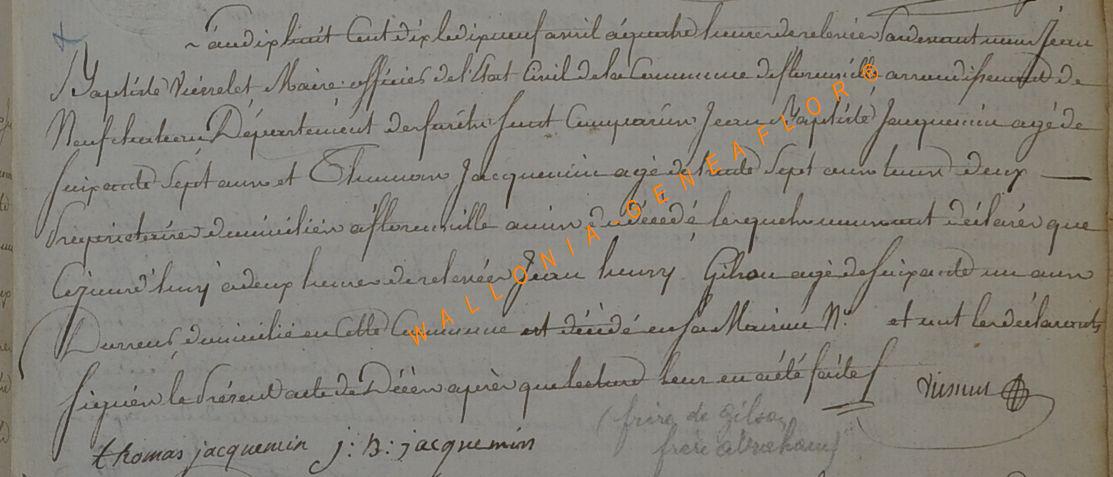 L'an dix huit cent dix le dix neuf avril à quatre heures de relevée pardevant nous Jean
Baptiste Vieselet Maire officier de l'Etat Civil de la Commune de florenville arrondissement de
Neufchateau Département des forêts sont comparus Jean Baptiste Jacquemin agé de
soixante sept ans et Thomas Jacquemin agé de trente sept ans tous deux
propriétaires domiciliés à florenville amis du décédé lesquels nous ont déclarés que
Cejourd'huij à deux heures de relevée Jean henrij Gilson agé de soixante un ans
domicilié en cette Commune est décédé en sa Maison N° et ont les déclarants
signés le présent acte de Décès après que lecture leur en a été faite
thomas jacquemin j: B: jacquemin
(frère de Gilson
frère abraham)
WALLONIA-GENEAFLOR®